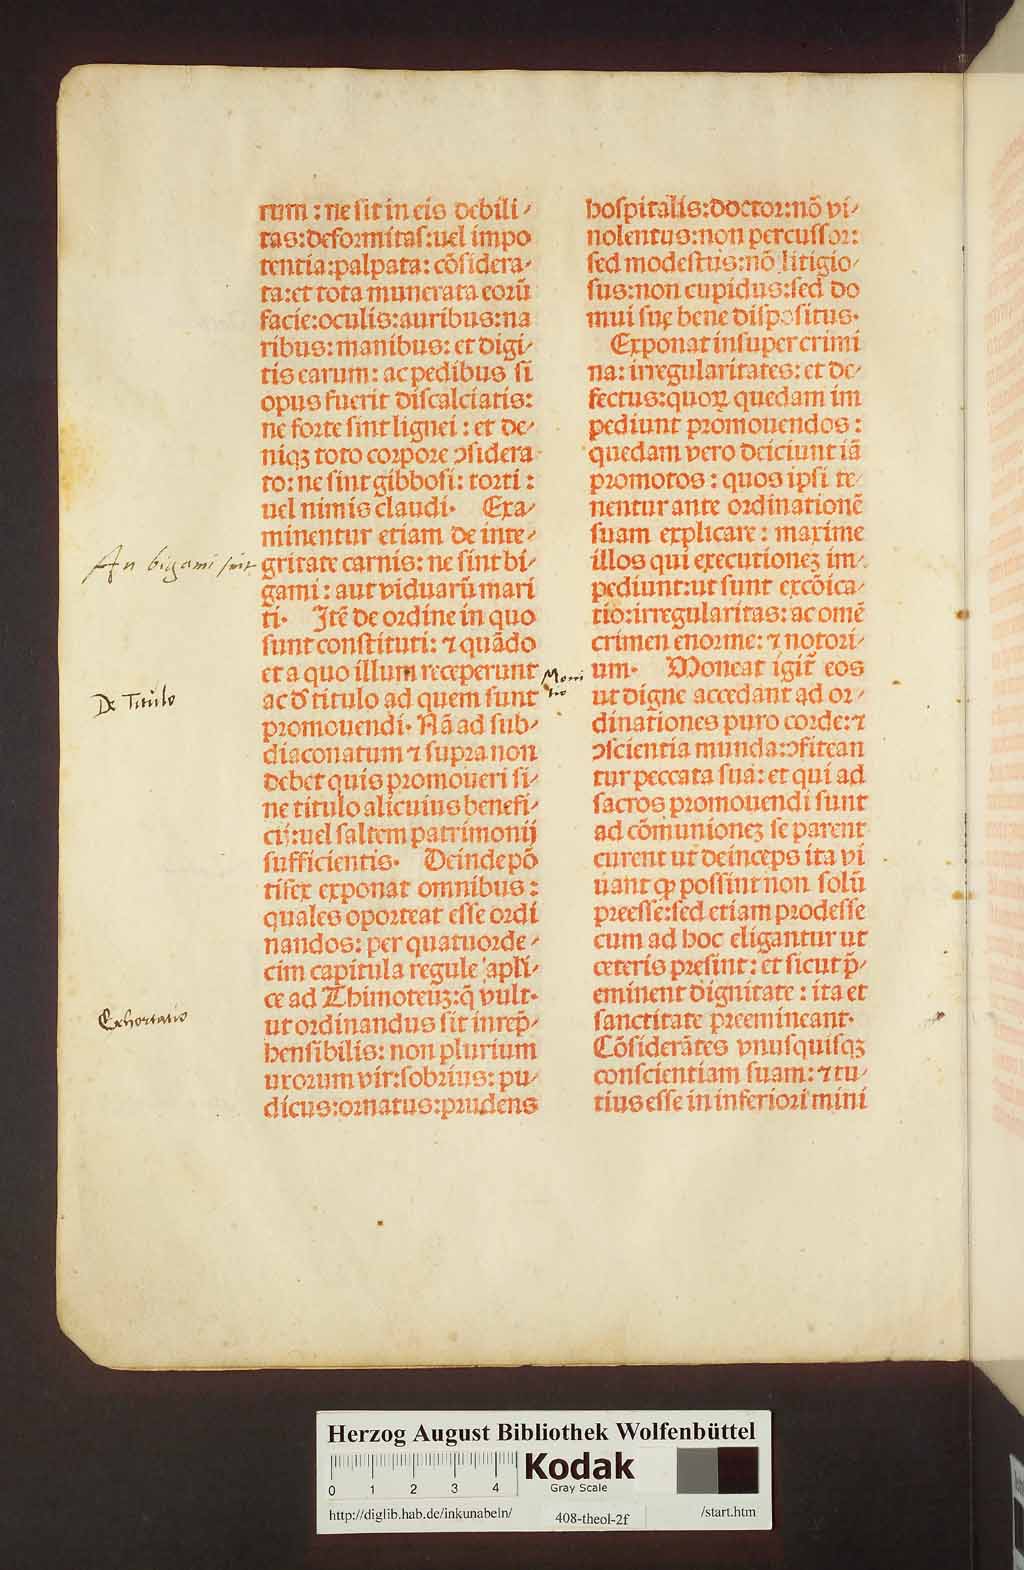 rum : ne sit in eis debili-
tas:deformitas:uel impo
tentia:palpata: cõsidera-
ta:et tota munerata eorũ
facie:oculis:auribus:na
ribus:manibus: et digi-
tis earum: ac pedibus si
opus fuerit discalciatis:
ne forte sint lignei : et de-
niqꝫ toto corpore ↄsidera
to: ne sint gibbosi: torti :
uel nimis claudi. Exa-
minentur etiam de inte-
An bigami sint
gritate carnis: ne sint bi-
gami : aut viduarũ mari
ti. Itẽ de ordine in quo
sunt constituti: ⁊ quãdo
et a quo illum receperunt
De Titulo
ac ð titulo ad quem sunt
promouendi. Nã ad sub-
diaconatum ⁊ supra non
debet quis promoueri si-
ne titulo alicuius benefi-
cij:uel saltem patrimonij
sufficientis. Deinde põ
tifex exponat omnibus :
quales oporteat esse ordi
nandos: per quatuorde-
cim capitula regule apli-
ce ad Thimoteuꝫ:q̃ vult.
Exhortatio
ut ordinandus sit inrep̃-
hensibilis: non plurium
uxorum vir:sobrius: pu-
dicus:ornatus:prudens
hospitalis:doctor:nõ vi-
nolentus:non percussor:
sed modestus:nõ litigio-
sus:non cupidus:sed do
mui suę bene dispositus.
Exponat insuper crimi
na: irregularitates: et de-
fectus:quoꝝ quedam im
pediunt promouendos :
quedam vero deiciunt iã
promotos : quos ipsi te-
nentur ante ordinationẽ
suam explicare : maxime
illos qui executioneꝫ im-
pediunt:ut sunt excõica-
tio:irregularitas: ac omẽ
crimen enorme: ⁊ notori-
Moni
tio
um. Moneat igit̃ eos
ut digne accedant ad or-
dinationes puro corde:⁊
ↄscientia munda:ↄfitean
tur peccata sua: et qui ad
sacros promouendi sunt
ad cõmunioneꝫ se parent
curent ut deinceps ita vi
uant ꝙ possint non solũ
preesse:sed etiam prodesse
cum ad hoc eligantur ut
ceteris presint: et sicut p̃-
eminent dignitate : ita et
sanctitate preemineant.
Cõsiderãtes vnusquisqꝫ
conscientiam suam: ⁊ tu-
tius esse in inferiori mini
Herzog August Bibliothek Wolfenbüttel
0 1 2 3 4
Kodak
Gray Scale
http://diglib.hab.de/inkunabeln/ 408-theol-2f /start.htm